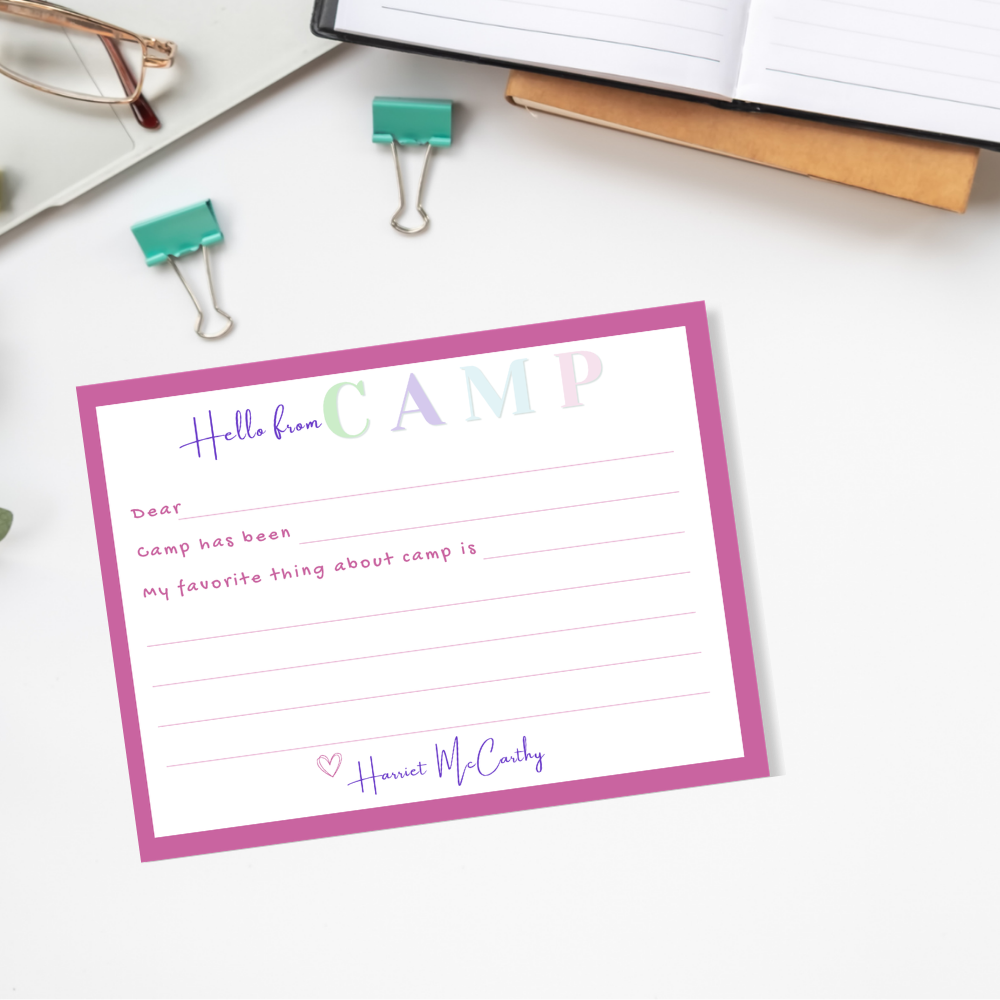 Hello from CAMP
Dear
Camp has been
My favorite thing about camp is
Harriet McCarthy